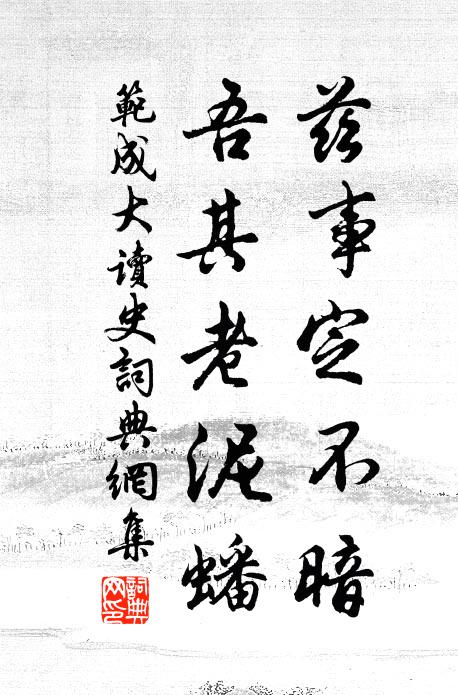 茲事定不暗
吾其老泥蟠
範成大讀史詞典網集
詞典網印